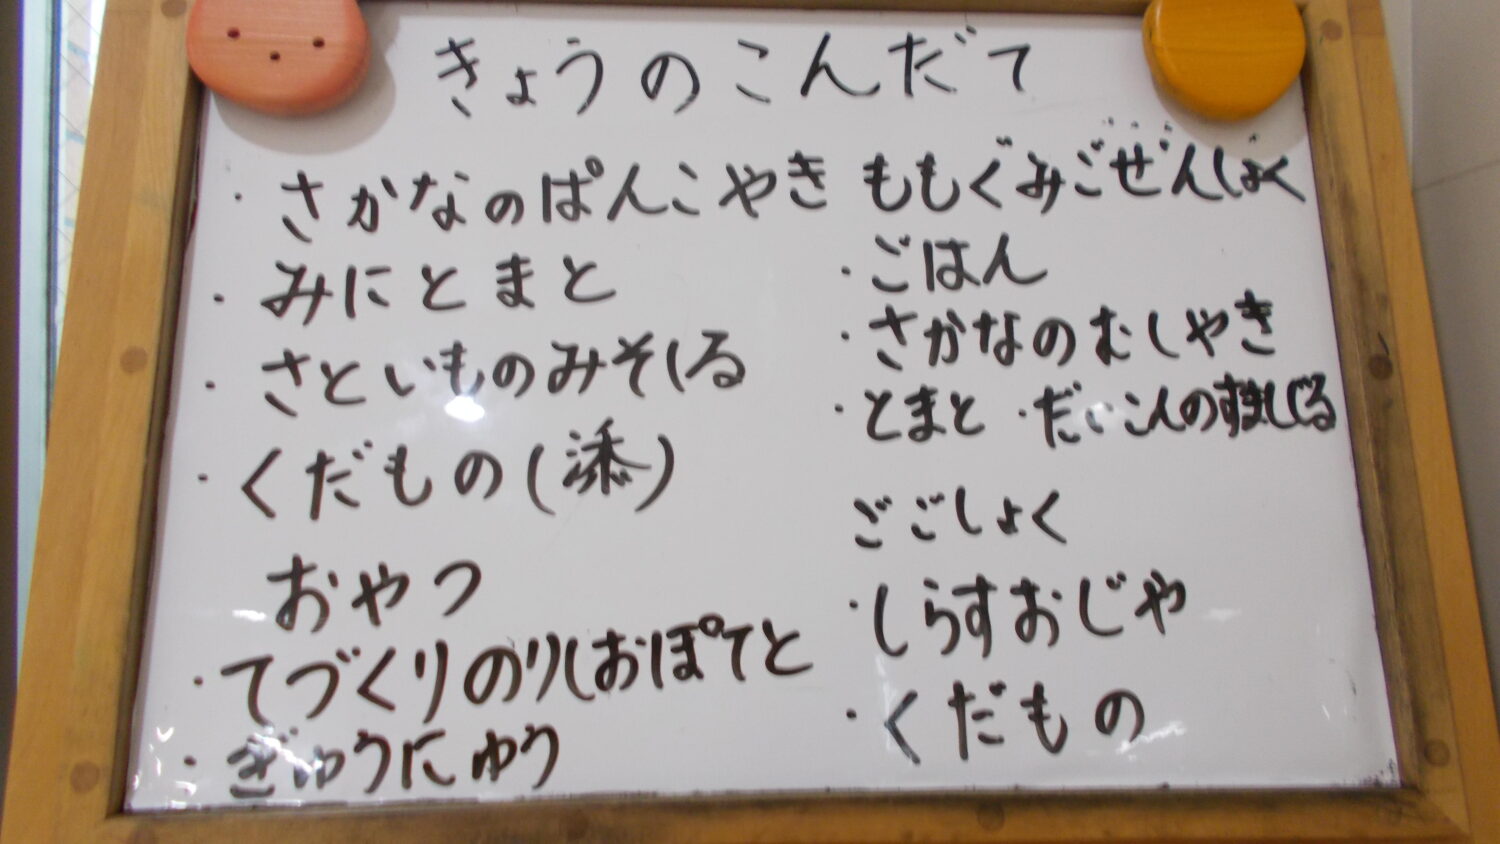 きょうのこんだて
・さかなのぱんこやき
・みにとまと
・さといものみそしる
・くだもの(添)
おやつ
・てづくりのりしおぽてと
・ぎゅうにゅう
ももぐみごぜんしょく
・ごはん
・さかなのむしやき
・とまと ・だいこんのすましじる
ごごしょく
・しらすおじや
・くだもの